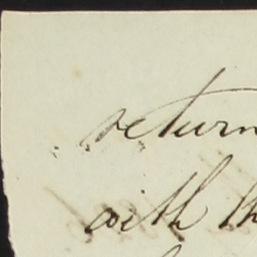 return
with th